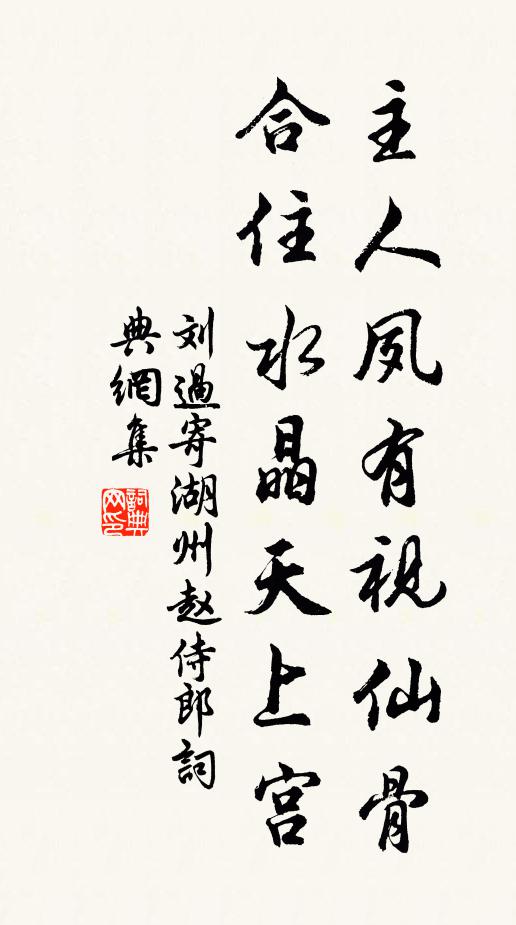 主人夙有視仙骨
合住水晶天上宫
刘過寄湖州赵侍郎詞
典網集
詞典网印